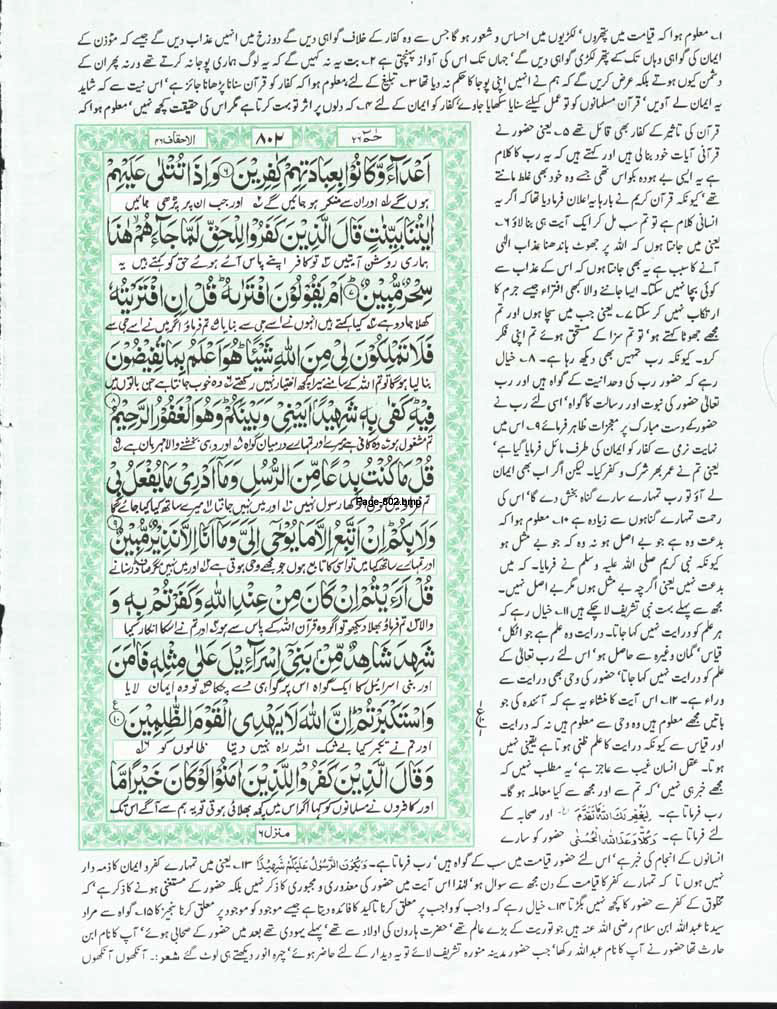 ۱۔ معلوم ہوا کہ قیامت میں پتھروں' لکڑیوں میں احساس و شعور ہو گا جس سے وہ کفار کے خلاف گواہی دیں گے دوزخ میں انہیں عذاب دیں گے جیسے کہ مؤذن کے
ایمان کی گواہی وہاں تک کے پتھر لکڑی گواہی دیں گے' جہاں تک اس کی آواز پہنچتی ہے ۲۔ بت یہ نہ کہیں گے کہ یہ لوگ ہماری پوجا نہ کرتے تھے ورنہ پھر ان کے
دشمن کیوں ہوتے بلکہ عرض کریں گے کہ ہم نے انہیں اپنی پوجا کا حکم نہ دیا تھا ۳۔ تبلیغ کے لئے معلوم ہوا کہ کفار کو قرآن سنانا پڑھانا جائز ہے' اس نیت سے کہ شاید
یہ ایمان لے آویں' قرآن مسلمانوں کو تو عمل کیلئے سنایا سکھایا جاوے کفار کو ایمان کے لئے ۴۔ کہ دلوں پر اثر تو بہت کرتا ہے مگر اس کی حقیقت کچھ نہیں' معلوم ہوا کہ
قرآن کی تاثیر کے کفار بھی قائل تھے ۵۔ یعنی حضور نے
قرآنی آیات خود بنالی ہیں اور کہتے ہیں کہ یہ رب کا کلام
ہے یہ ایسی بے ہودہ بکواس تھی جسے وہ خود بھی غلط مانتے
تھے' کیونکہ قرآن کریم نے بارہا یہ اعلان فرما دیا تھا کہ اگر یہ
انسانی کلام ہے تو تم سب مل کر ایک آیت ہی بنا لاؤ ۶۔
یعنی میں جانتا ہوں کہ اللہ پر جھوٹ باندھنا عذاب الٰہی
آنے کا سبب ہے یہ بھی جانتا ہوں کہ اس کے عذاب سے
کوئی بچا نہیں سکتا۔ ایسا جاننے والا کبھی افتراء جیسے جرم کا
ارتکاب نہیں کر سکتا ۷۔ یعنی جب میں سچا ہوں اور تم
مجھے جھوٹا کہتے ہو' تو تم سزا کے مستحق ہوئے تم اپنی فکر
کرو۔ کیونکہ رب تمہیں بھی دیکھ رہا ہے۔ ۸۔ خیال
رہے کہ حضور رب کی وحدانیت کے گواہ ہیں اور رب
تعالیٰ حضور کی نبوت اور رسالت کا گواہ' اسی لئے رب نے
حضور کے دست مبارک پر معجزات ظاہر فرمائے ۹۔ اس میں
نہایت نرمی سے کفار کو ایمان کی طرف مائل فرمایا گیا ہے'
یعنی تم نے عمر بھر شرک و کفر کیا۔ لیکن اگر اب بھی ایمان
لے آؤ تو رب تمہارے سارے گناہ بخش دے گا' اس کی
رحمت تمہارے گناہوں سے زیادہ ہے ۱۰۔ معلوم ہوا کہ
بدعت وہ ہے جو بے اصل ہو نہ وہ کہ جو بے مثل ہو
کیونکہ نبی کریم صلی اللہ علیہ وسلم نے فرمایا۔ کہ میں
بدعت نہیں یعنی اگرچہ بے مثل ہوں مگر بے اصل نہیں۔
مجھ سے پہلے بہت نبی تشریف لا چکے ہیں ۱۱۔ خیال رہے کہ
ہر علم کو درایت نہیں کہا جاتا۔ درایت وہ علم ہے جو اٹکل'
قیاس' گمان وغیرہ سے حاصل ہو' اس لئے رب تعالیٰ کے
علم کو درایت نہیں کہا جاتا' حضور کی وحی بھی درایت سے
وراء ہے۔ ۱۲۔ اس آیت کا منشاء یہ ہے کہ آئندہ کی جو
باتیں مجھے معلوم ہیں وہ وحی سے معلوم ہیں نہ کہ درایت
اور قیاس سے کیونکہ درایت کا علم ظنی ہوتا ہے یقینی نہیں
ہوتا۔ عقل انسان غیب سے عاجز ہے' یہ مطلب نہیں کہ
مجھے خبر ہی نہیں' کہ تم سے اور مجھ سے کیا معاملہ ہو گا۔
رب فرماتا ہے۔ لِيَغْفِرَ لَكَ اللهُ مَا تَقَدَّمَ اور صحابہ کے
لئے فرماتا ہے۔ وَكُلًّا وَعَدَ اللهُ الْحُسْنٰى حضور کو سارے
الاحقاف ۴۶
۸۰۲
حٰمٓ ۲۶
اَعْدَآءً وَّكَانُوْا بِعِبَادَتِهِمْ كٰفِرِيْنَ ۶ وَاِذَا تُتْلٰى عَلَيْهِمْ
ہوں گے اور ان سے منکر ہو جائیں گے اور جب ان پر پڑھی جائیں
اٰيٰتُنَا بَيِّنٰتٍ قَالَ الَّذِيْنَ كَفَرُوْا لِلْحَقِّ لَمَّا جَآءَهُمْ هٰذَا
ہماری روشن آیتیں تو کافر اپنے پاس آئے ہوئے حق کو کہتے ہیں یہ
سِحْرٌ مُّبِيْنٌ ۷ اَمْ يَقُوْلُوْنَ افْتَرٰىهُ قُلْ اِنِ افْتَرَيْتُهٗ
کھلا جادو ہے کیا کہتے ہیں انہوں نے اسے جی سے بنایا تم فرماؤ اگر میں نے اسے جی سے
فَلَا تَمْلِكُوْنَ لِيْ مِنَ اللهِ شَيْئًا هُوَ اَعْلَمُ بِمَا تُفِيْضُوْنَ
بنا لیا ہو گا تو تم اللہ کے سامنے میرا کچھ اختیار نہیں رکھتے وہ خوب جانتا ہے جن باتوں میں
فِيْهِ كَفٰى بِهٖ شَهِيْدًا بَيْنِيْ وَبَيْنَكُمْ وَهُوَ الْغَفُوْرُ الرَّحِيْمُ ۸
تم مشغول ہو وہ کافی ہے میرے اور تمہارے درمیان گواہ اور وہی بخشنے والا مہربان ہے
قُلْ مَا كُنْتُ بِدْعًا مِّنَ الرُّسُلِ وَمَآ اَدْرِيْ مَا يُفْعَلُ بِيْ
رسول نہیں اور میں نہیں جانتا میرے ساتھ کیا کیا جائے گا
Page-802.bmp
وَلَا بِكُمْ اِنْ اَتَّبِعُ اِلَّا مَا يُوْحٰٓى اِلَيَّ وَمَآ اَنَا اِلَّا نَذِيْرٌ مُّبِيْنٌ ۹
اور تمہارے ساتھ کیا میں تو اسی کا تابع ہوں جو مجھے وحی ہوتی ہے اور میں نہیں مگر صاف ڈر سنانے
قُلْ اَرَءَيْتُمْ اِنْ كَانَ مِنْ عِنْدِ اللهِ وَكَفَرْتُمْ بِهٖ وَ
والا تم فرماؤ بھلا دیکھو تو اگر وہ قرآن اللہ کے پاس سے ہو اور تم نے اسکا انکار کیا
شَهِدَ شَاهِدٌ مِّنْ بَنِيْٓ اِسْرَآءِيْلَ عَلٰى مِثْلِهٖ فَاٰمَنَ
اور بنی اسرائیل کا ایک گواہ اس پر گواہی دے چکا تو وہ ایمان لایا
وَاسْتَكْبَرْتُمْ اِنَّ اللهَ لَا يَهْدِي الْقَوْمَ الظّٰلِمِيْنَ ۱۰
اور تم نے تکبر کیا بے شک اللہ راہ نہیں دیتا ظالموں کو
وَقَالَ الَّذِيْنَ كَفَرُوْا لِلَّذِيْنَ اٰمَنُوْا لَوْ كَانَ خَيْرًا مَّا
اور کافروں نے مسلمانوں کو کہا اگر اس میں کچھ بھلائی ہوتی تو یہ ہم سے آگے اس تک
منزل ۶
انسانوں کے انجام کی خبر ہے' اس لئے حضور قیامت میں سب کے گواہ ہیں' رب فرماتا ہے۔ وَيَكُوْنَ الرَّسُوْلُ عَلَيْكُمْ شَهِيْدًا ۱۳۔ یعنی میں تمہارے کفر و ایمان کا ذمہ دار
نہیں ہوں تا کہ تمہارے کفر کا قیامت کے دن مجھ سے سوال ہو' لہٰذا اس آیت میں حضور کی معذوری و مجبوری کا ذکر نہیں بلکہ حضور کے مستغنی ہونے کا ذکر ہے' کہ
مخلوق کے کفر سے حضور کا کچھ نہیں بگڑتا ۱۴۔ خیال رہے کہ واجب کو واجب پر معلق کرنا تاکید کا فائدہ دیتا ہے جیسے موجود کو موجود پر معلق کرنا ۱۵۔ گواہ سے مراد
سیدنا عبداللہ ابن سلام رضی اللہ عنہ ہیں جو توریت کے بڑے عالم تھے' حضرت ہارون کی اولاد سے تھے' پہلے یہودی تھے بعد میں حضور کے صحابی ہوئے' آپ کا نام ابن
حارث تھا حضور نے آپ کا نام عبداللہ رکھا' جب حضور مدینہ منورہ تشریف لائے تو یہ دیدار کے لئے حاضر ہوئے' چہرہ انور دیکھتے ہی لوٹ گئے شعر :۔ آنکھوں آنکھوں